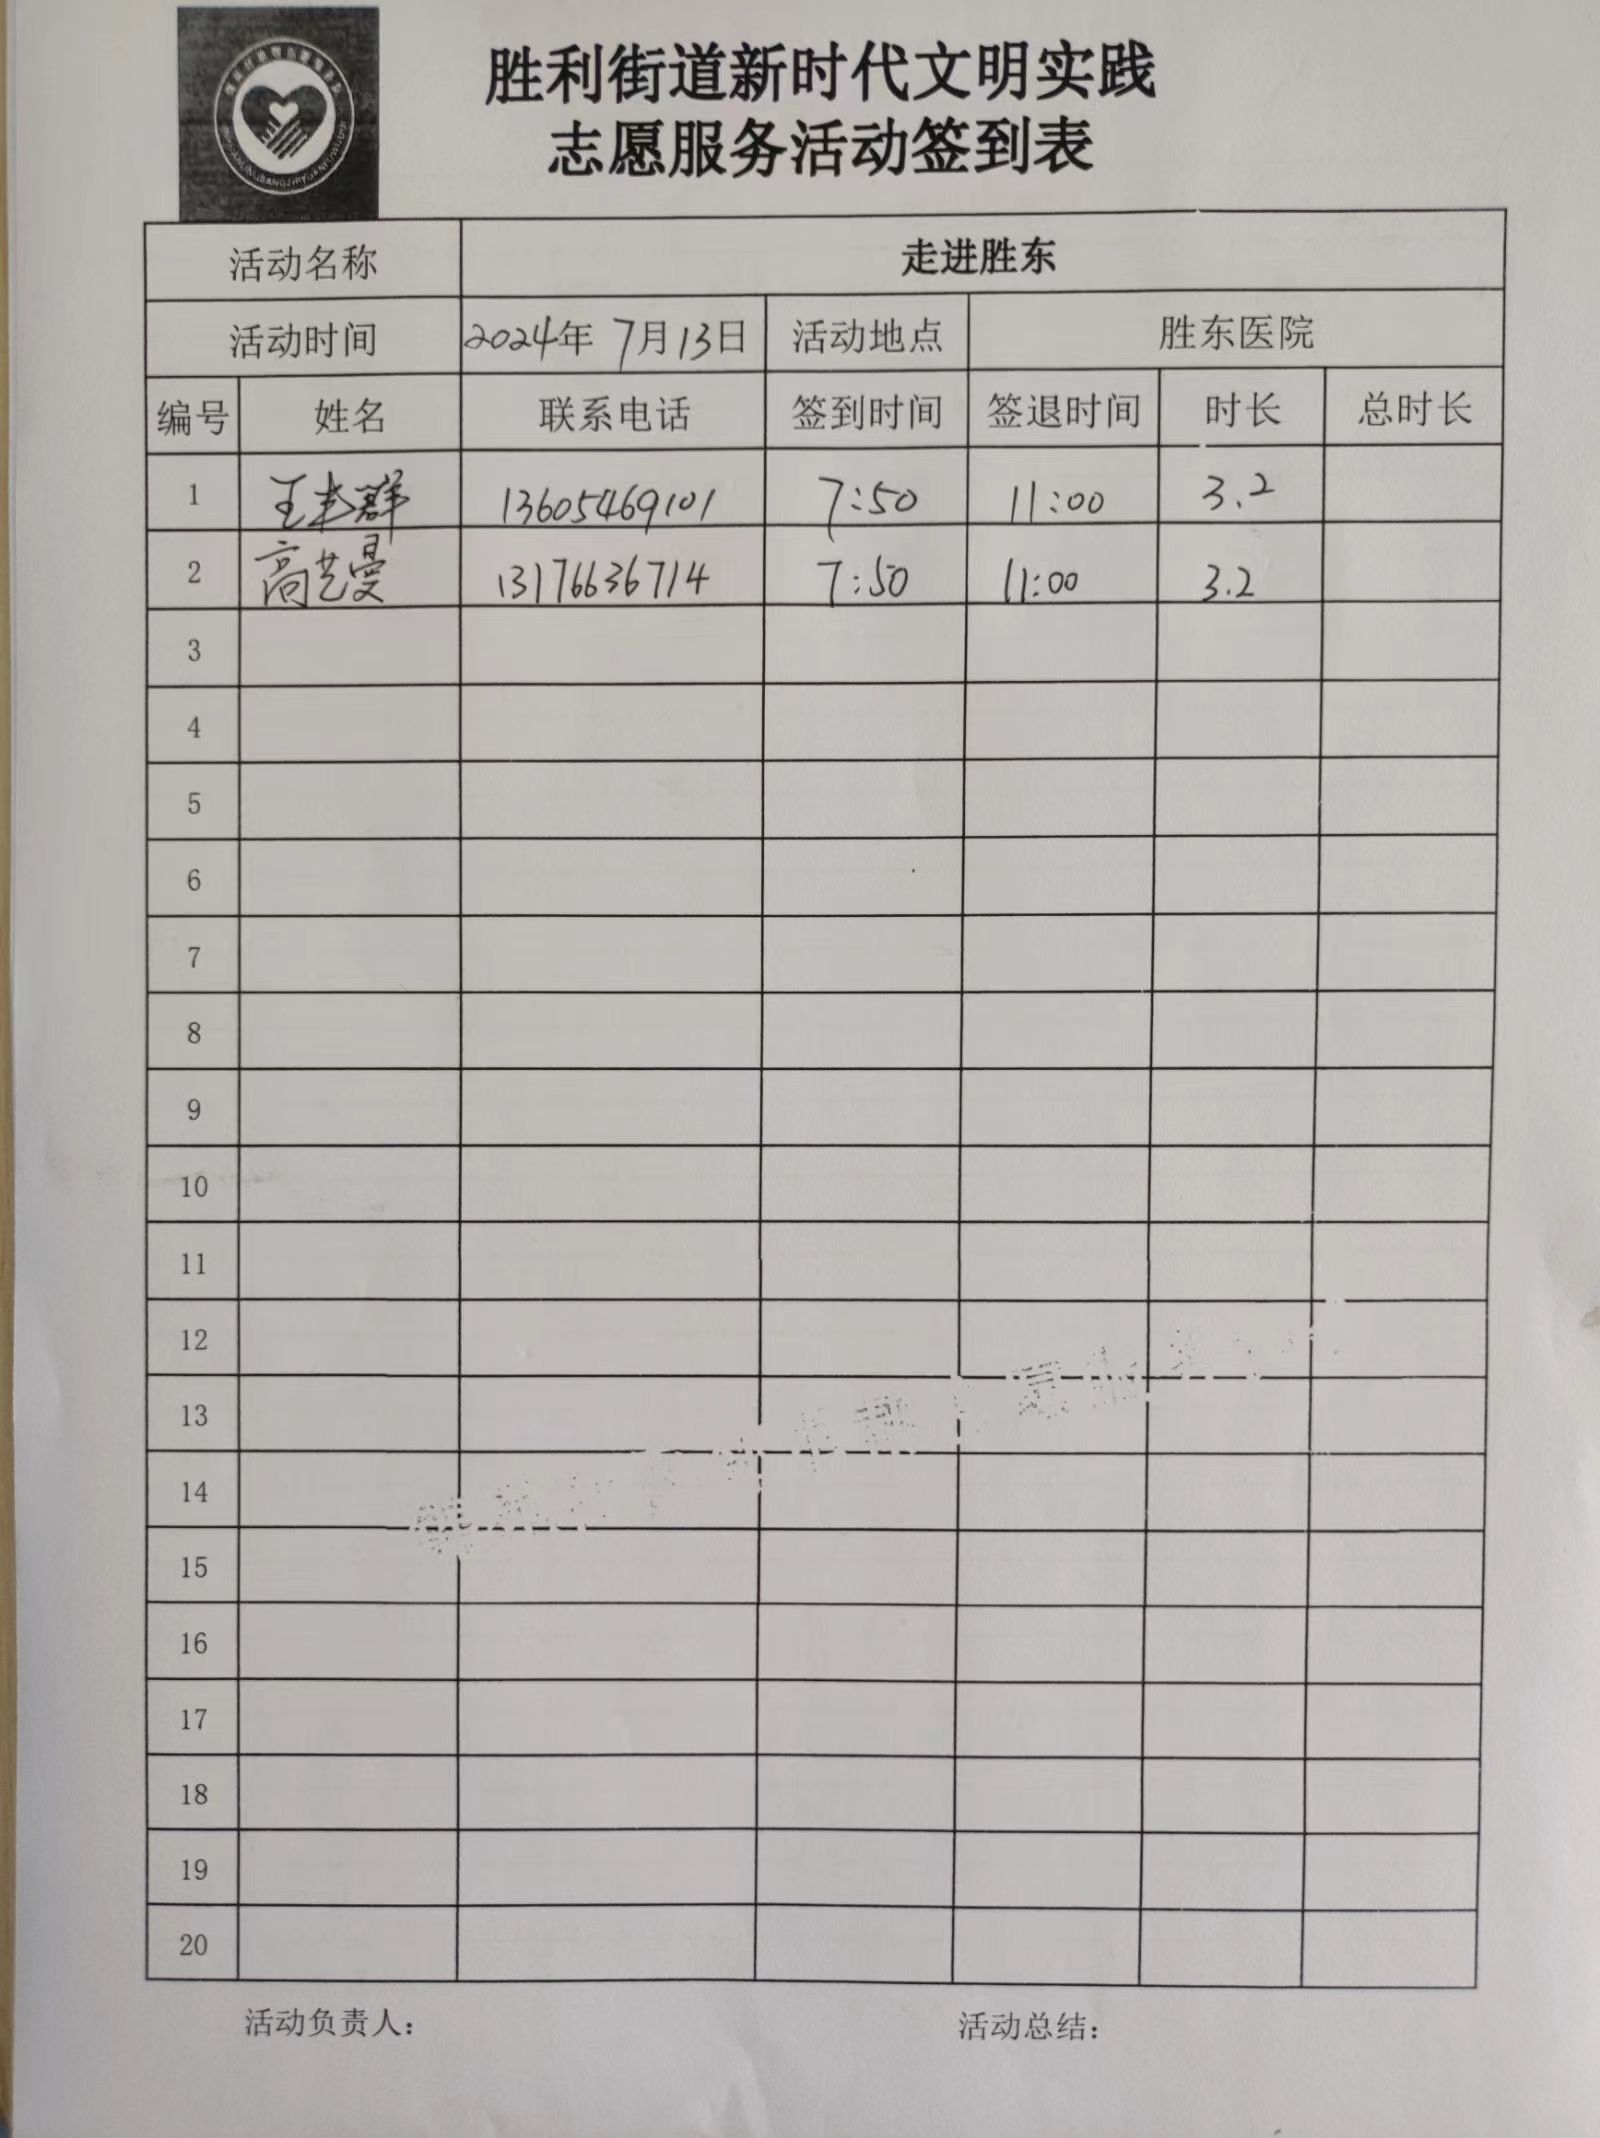 胜利街道新时代文明实践
志愿服务活动签到表
活动名称 走进胜东
活动时间 2024年 7月13日 活动地点 胜东医院
编号 姓名 联系电话 签到时间 签退时间 时长 总时长
1 王丰群 13605469101 7:50 11:00 3.2
2 高艺曼 13176636714 7:50 11:00 3.2
3
4
5
6
7
8
9
10
11
12
13
14
15
16
17
18
19
20
活动负责人： 活动总结：